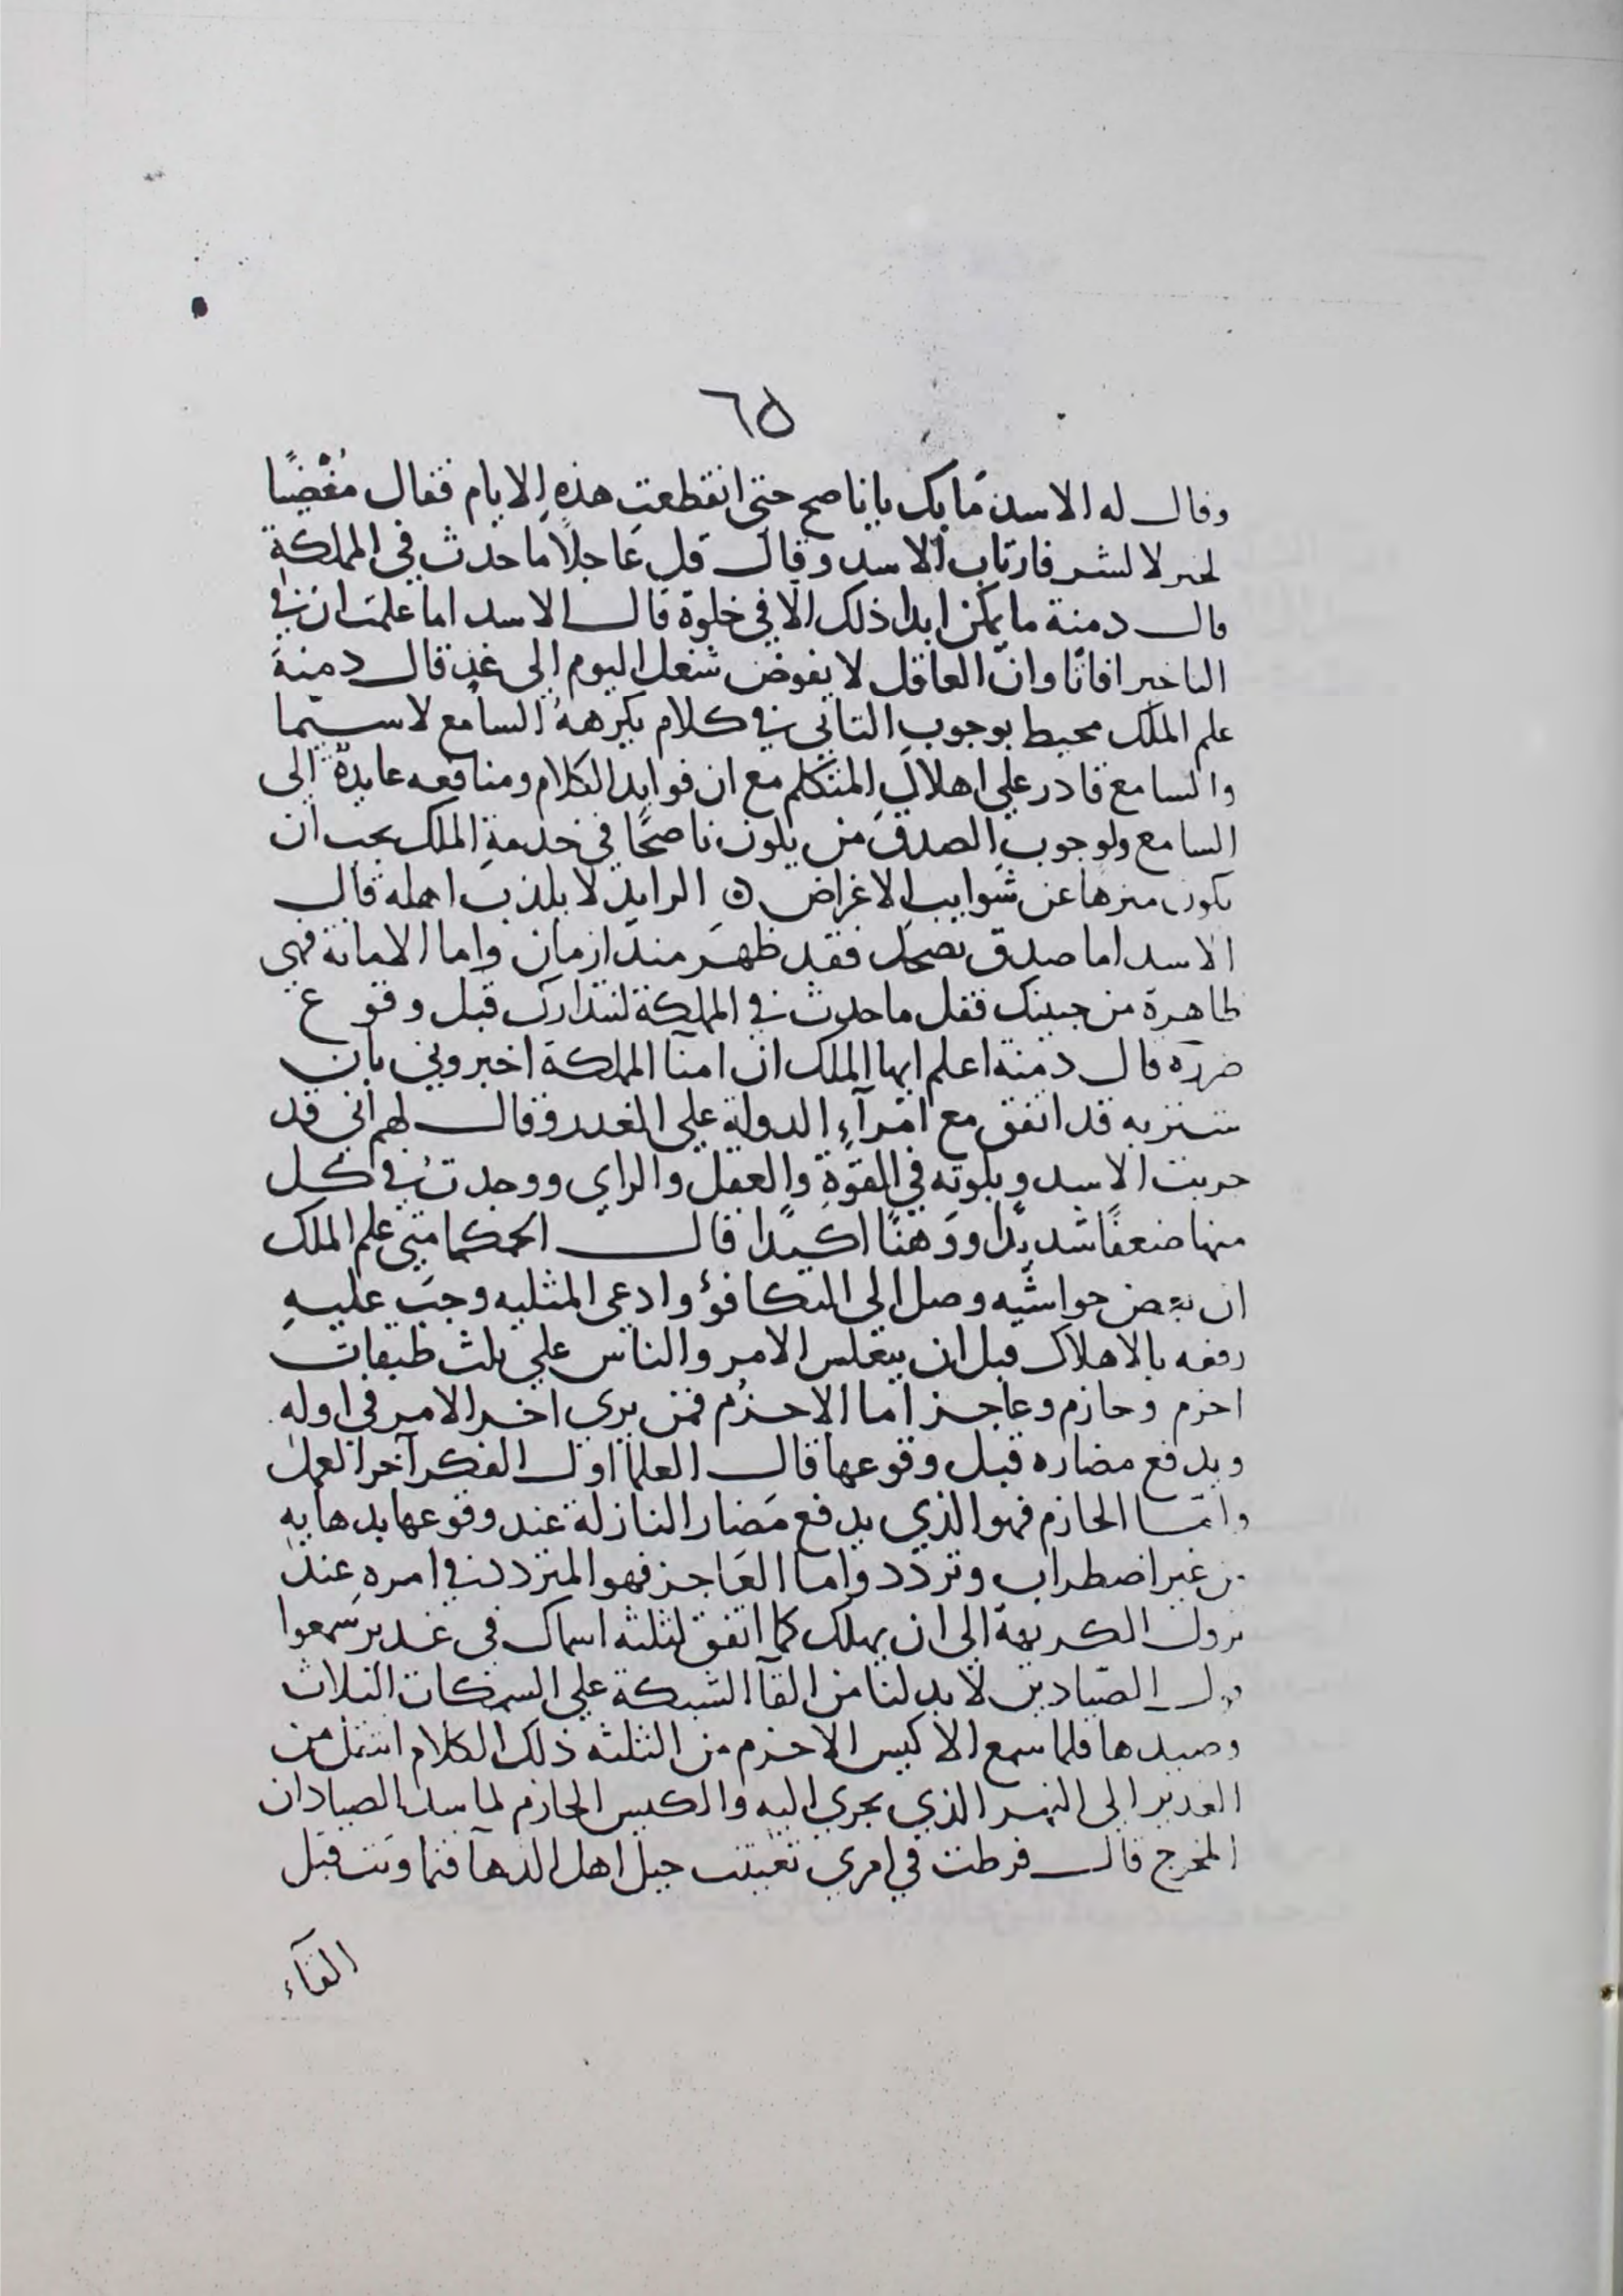 ٦٥
وقال له الاسد مَا بك يا ناصح حتى انقطعتِ هذهِ الايام فقال مُغْضِبًا
لخير لا لشر فارتاب الاسد وقال قل عَاجلًا ما حدث في المملكة
قال دمنة ما يمكن ابدا ذلك الا في خلوة قال الاسد اما علمت ان في
التاخير افاتا وانّ العاقل لا يفوض شغل اليوم الى غد قال دمنة
علم الملك محيط بوجوب التاني في كلام يكرههُ السامع لا سيّما
والسامع قادر على اهلاك المتكلم مع ان فوايد الكلام ومنافعه عايدة الى
السامع ولوجوب الصدق من يكون ناصحًا في خدمة الملك يجب ان
يكون منزها عن شوايب الاغراض ن الرايد لا يكذب اهله قال
الاسد اما صدق نصحك فقد ظهر منذ ازمان واما الامانة فهي
ظاهرة من جبينك فقل ما حدث في المملكة لنتدارك قبل وقوع
ضرره قال دمنة اعلم ايها الملك ان امنآ المملكة اخبروني بان
شنزبه قد اتفق مع امرآءِ الدولة على الغدر وقال لهم اني قد
جربت الاسد وبلوته في القوّةِ والعقل والراي ووجدتُ في كل
منها ضعفًا شديدًا ووَهنًا اكيدًا قال الحكما متى علم الملك
ان بعض حواشيه وصل الى التكافؤ وادعى المثليه وجب عليهِ
رفعه بالاهلاك قبل ان ينعكس الامر والناس على ثلث طبقات
احزم وحازم وعاجز اما الاحزم فمن يرى اخر الامر في اوله
ويدفع مضاره قبل وقوعها قال العلما اول الفكر آخر العمل
وامّا الحازم فهو الذي يدفع مَضار النازلة عند وقوعها بدهايهِ
من غير اضطراب وتردد واما العَاجز فهو المتردد في امره عند
نزول الكريهة الى ان يهلك كما اتفق لثلثه اسماك في غدير سَمعوا
قول الصيادين لا بد لنا من القآ الشبكة على السمكات الثلاث
وصيدها فلما سمع الاكيس الاحزم من الثلثه ذلك الكلام انتقل من
الغدير الى النهر الذي يجري اليه والكيس الحازم لما سد الصيادان
المخرج قال فرطت في امري تغيبت حيل اهل الدهآ فتماوتت قبل
القآء